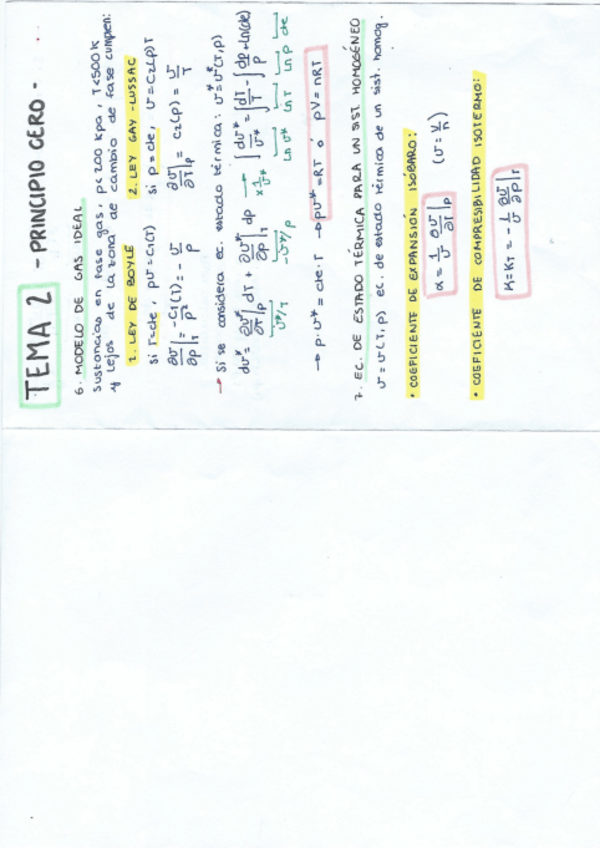 TEMA 2 - PRINCIPIO CERO -
6. MODELO DE GAS IDEAL
Sustancias en fase gas, p<200 kPa, T<500K
y lejos de la zona de cambio de fase cumplen:
1. LEY DE BOYLE 2. LEY GAY-LUSSAC
si T=cte, pv=C₁(T) si p=cte, v=C₂(p)T
∂v/∂p|T = -C₁(T)/p² = -v/p ∂v/∂T|p = C₂(p) = v/T
→ Si se considera ec. estado térmica: v*=v*(T,p)
dv* = ∂v*/∂T|p dT + ∂v*/∂p|T dp → x 1/v* ∫dv*/v* = ∫dT/T - ∫dp/p + ln(cte)
v*/T -v*/p ln v* ln T ln p cte
→ p·v* = cte·T → pv* = RT ó pV = nRT
7. EC. DE ESTADO TÉRMICA PARA UN SIST. HOMOGÉNEO
v = v(T,p) ec. de estado térmica de un sist. homog.
• COEFICIENTE DE EXPANSIÓN ISÓBARO:
α = 1/v ∂v/∂T|p (v = V/n)
• COEFICIENTE DE COMPRESIBILIDAD ISOTERMO:
K = K_T = -1/v ∂v/∂p|T